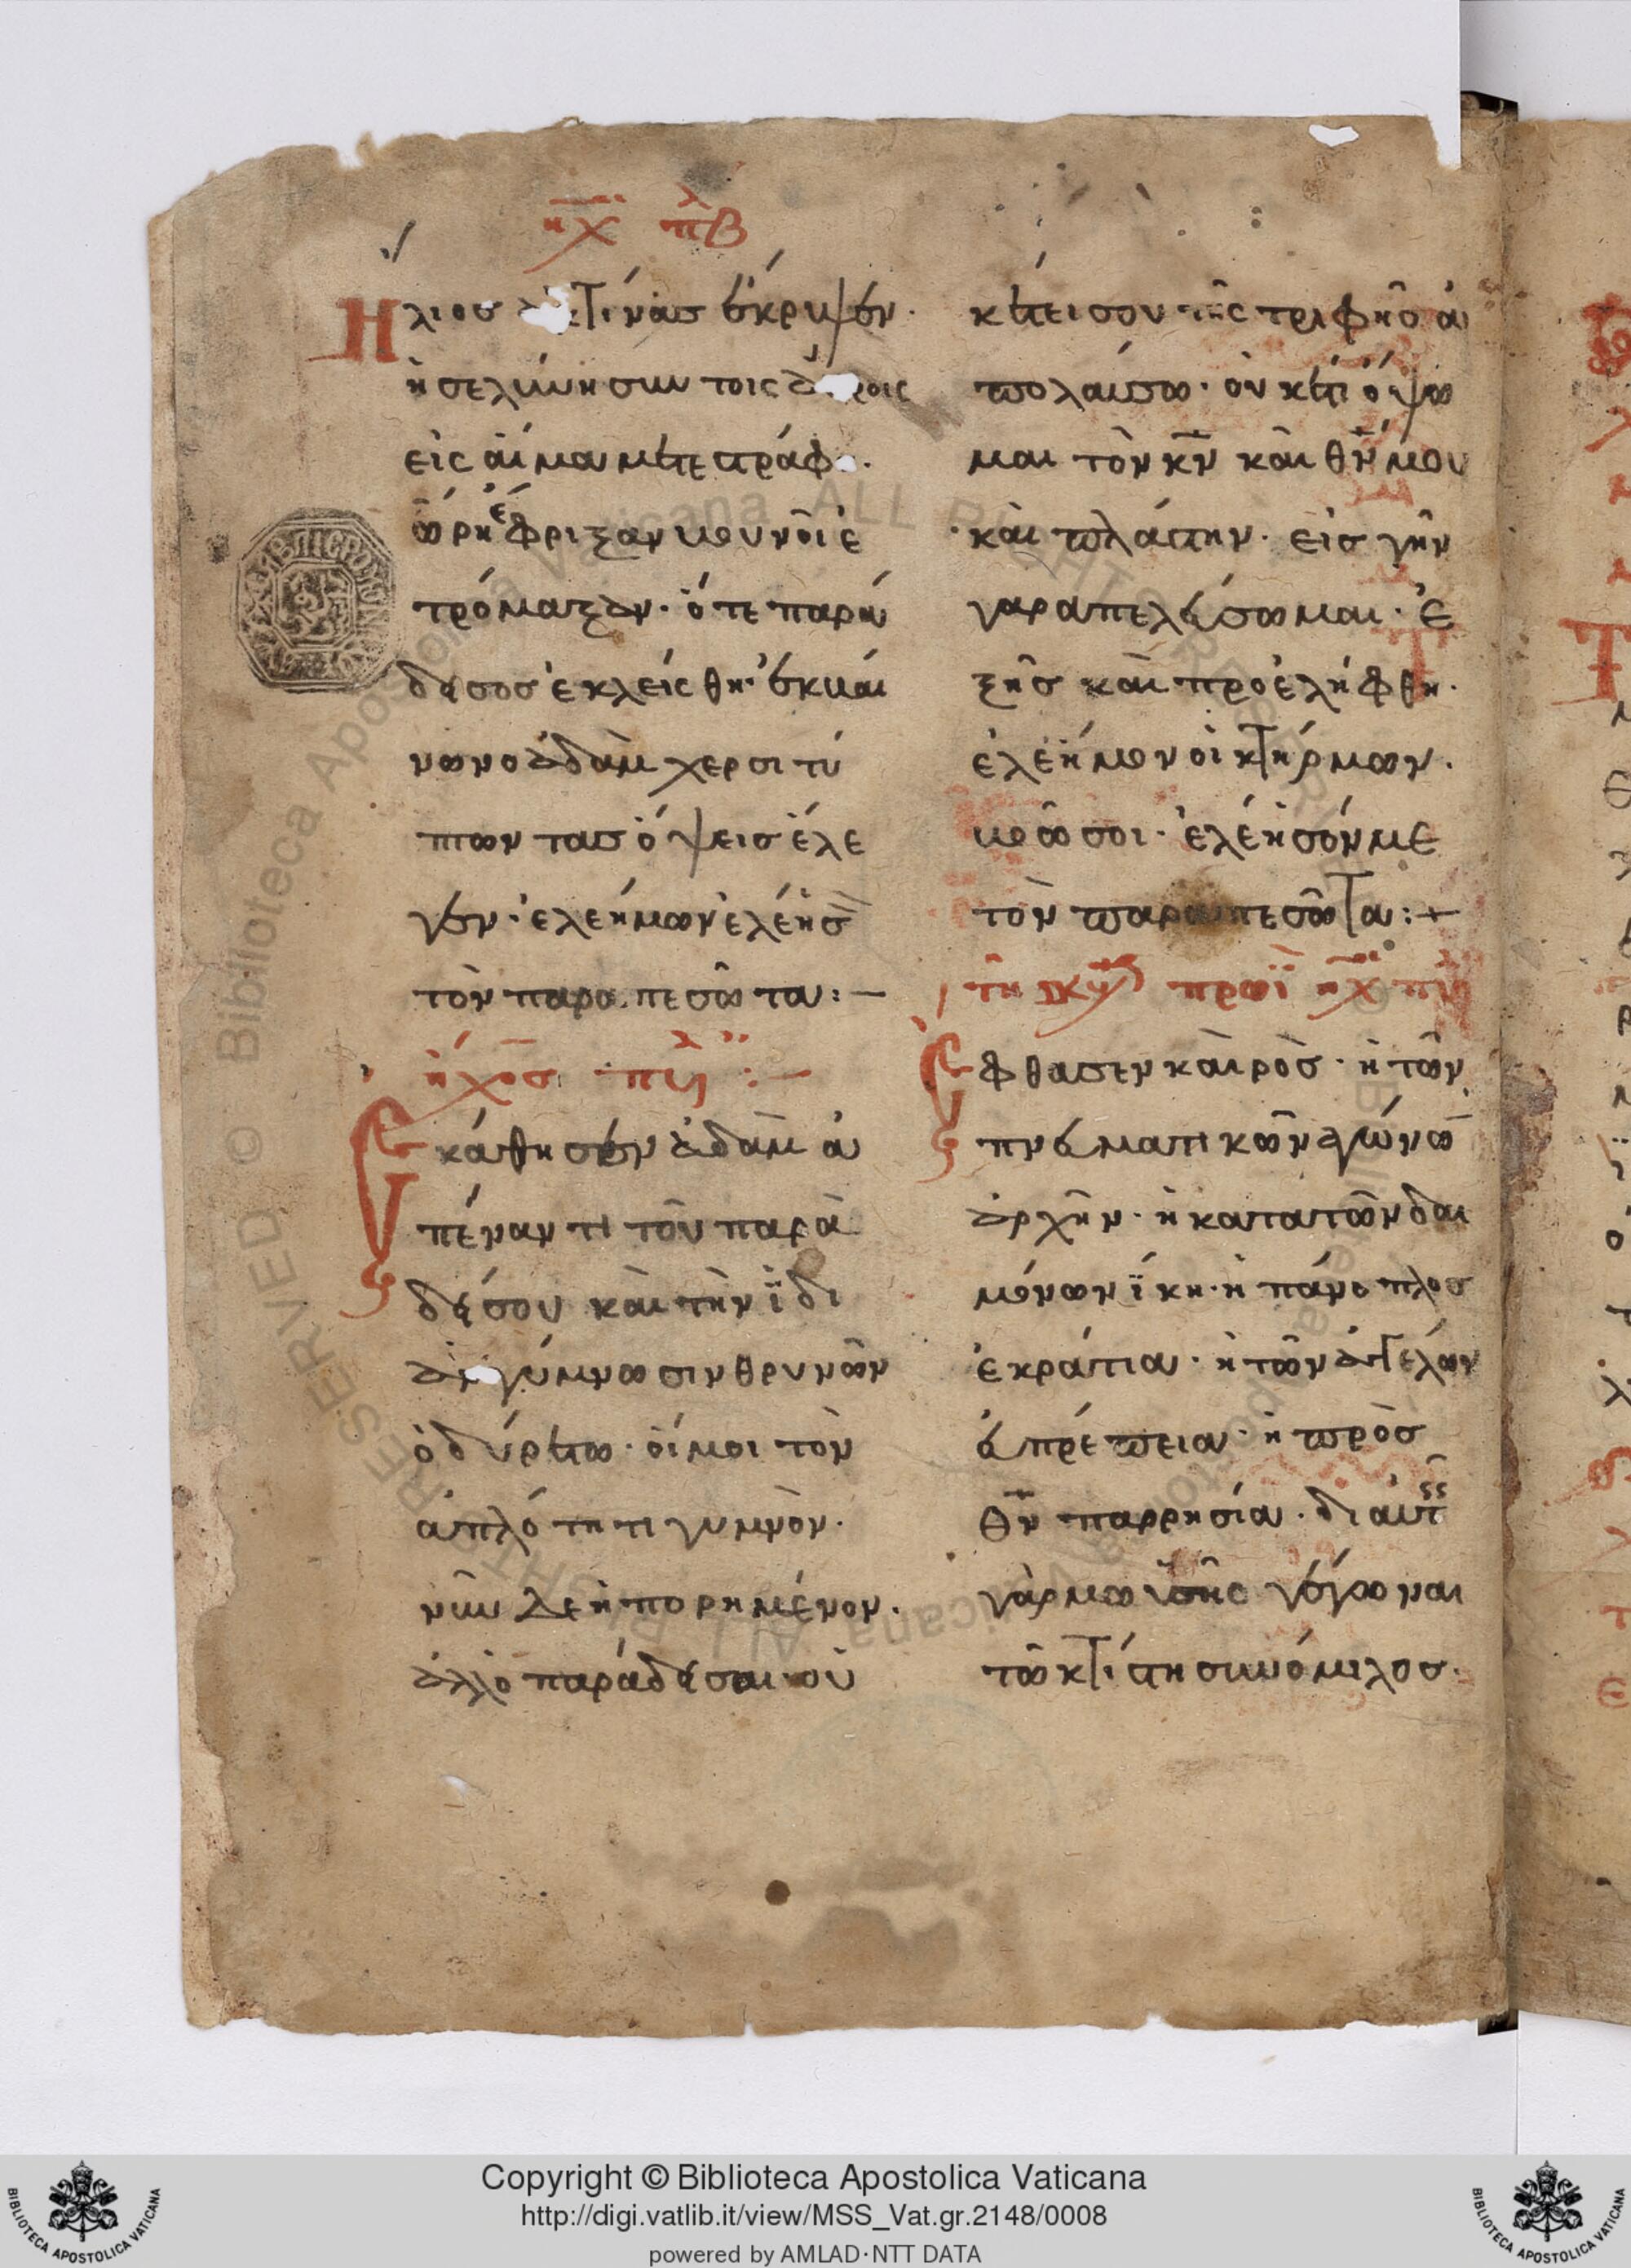 ηχ πλ Β
Ηλιος ἀκτίνας ἔκρυψεν·
ἡ σελύνη σὺν τοις ροις
εἰς αἷμα μετετράφ
ὤρη ἔφριξαν βουνοὶ ἐ
τρόμαξαν· ὅτε παρά
δεσος ἐκλείσθη· ἐκβαί
νων ο ἀδὰμ χερσι τύ
πτων τας ὄψεις ἔλε
γεν· ἐλεήμων ἐλέησὸ
τὸν παραπεσῶτα:—
ἦχος πλ β:—
Εκάθησεν ἀδὰμ ἀ
πέναντι τοῦ παρὰ
δεσου καὶ τὴν ἰδι
ὰν γύμνωσιν θρυνῶν
ὀδύρετω· οἴμοι τὸν
ἁπλότητι γυμνὸν·
νῦν δε ἠπορημένον·
ἀλλὸ παράδεσαι οὐ
κέτει σου τῆς τρυφῆς ἀ
πολαύσω· οὐκέτι ὄψω
μαι τὸν κν καὶ θν μου
καὶ πλάστην· εἰς γῆν
γαρ απελεύσωμαι· ἐ
ξῆς καὶ προελήφθη·
ἐλεήμον οἰκτήρμων·
βοῶ σοι· ἐλέησόν με
τὸν παραπεσῶτα:+
τη κυ πρωὶ ηχ πλ
Εφθασεν καὶρὸς· ἡ τῶν
πνευματικῶν ἀγώνω
ἀρχὴν· ἡ κατατῶν δαι
μόνων ίκη· ἡ πάνοπλος
ἐκράτια· ἡ τῶν ἀγγέλων
ἐυπρέπεια· ἡ πρὸς
θν παρρησία· δι αὐτ
γὰρ μωυσῆς γέγωναι
τῶ κτίστη συνόμιλος·
Copyright © Biblioteca Apostolica Vaticana
http://digi.vatlib.it/view/MSS_Vat.gr.2148/0008
powered by AMLAD·NTT DATA
BIBLIOTECA APOSTOLICA VATICANA
BIBLIOTECA APOSTOLICA VATICANA